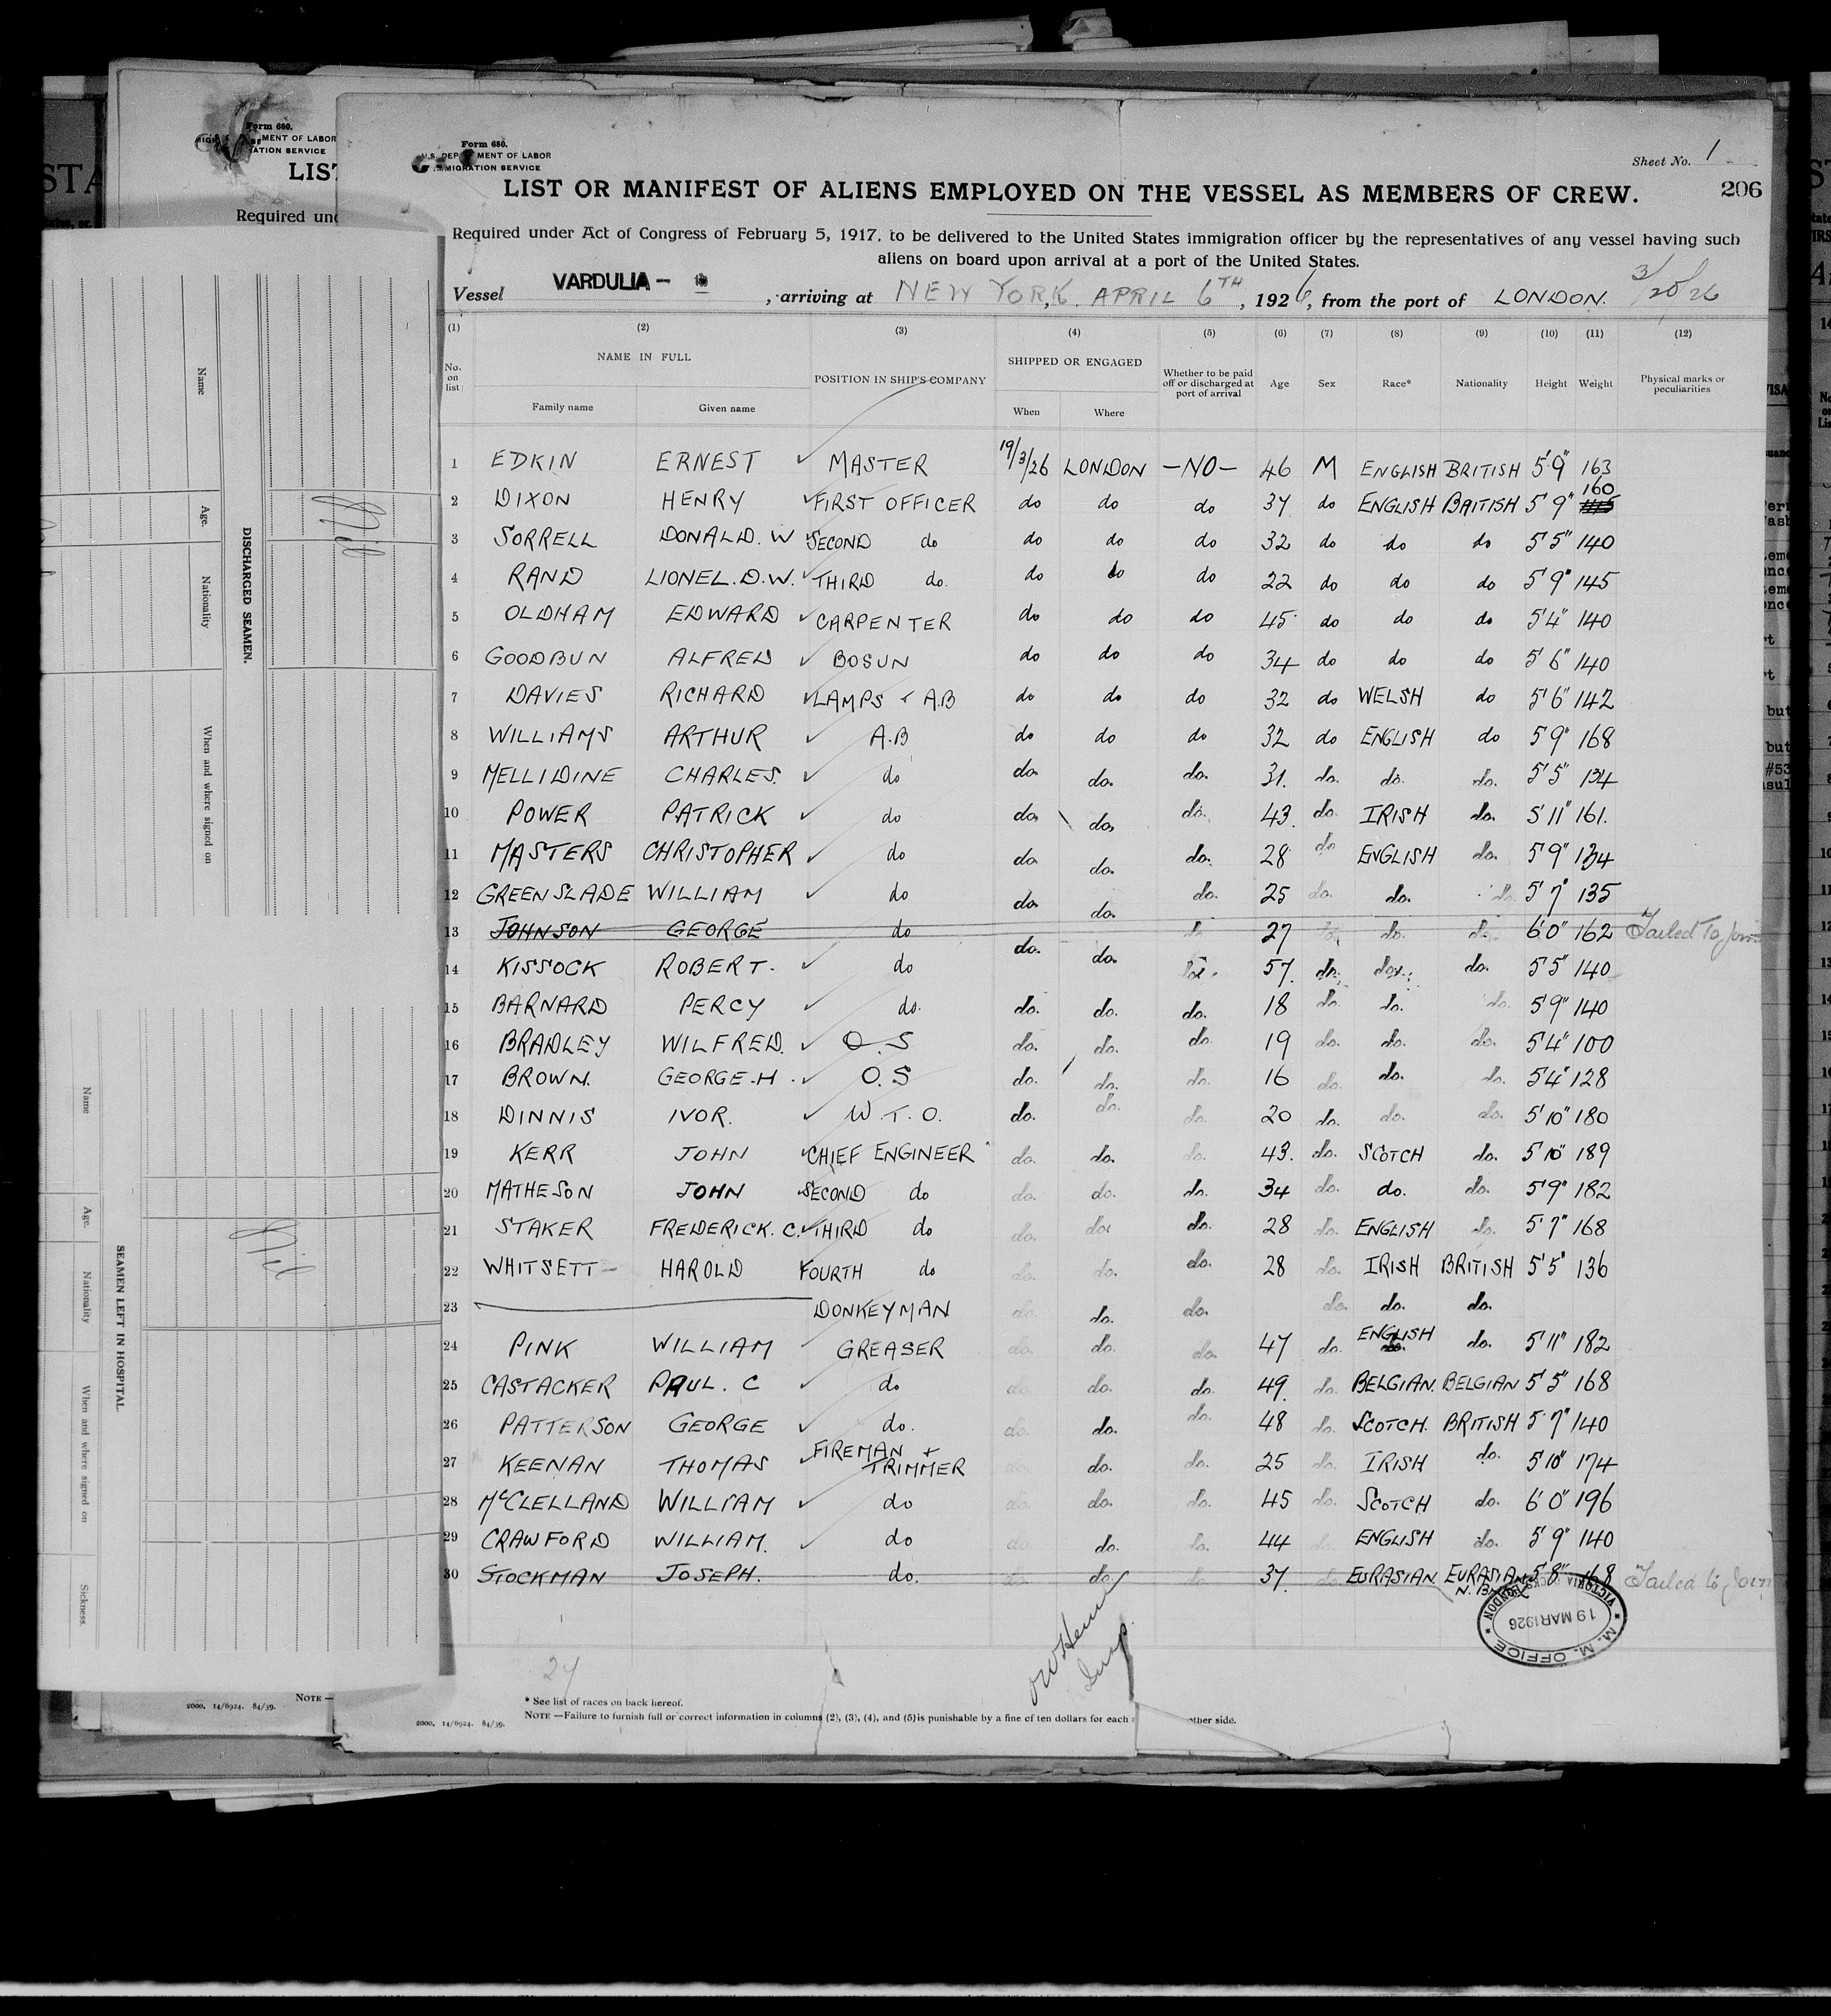 Form 680.
MENT OF LABOR
ATION SERVICE
Required und
Form 680.
U.S. DEP MENT OF LABOR
MIGRATION SERVICE
Sheet No. 1
LIST OR MANIFEST OF ALIENS EMPLOYED ON THE VESSEL AS MEMBERS OF CREW.
206
Required under Act of Congress of February 5, 1917, to be delivered to the United States immigration officer by the representatives of any vessel having such
aliens on board upon arrival at a port of the United States.
Vessel VARDULIA - , arriving at NEW YORK, APRIL 6TH, 1926, from the port of LONDON. 3/20/26
(1) (2) (3) (4) (5) (6) (7) (8) (9) (10) (11) (12)
No. on list NAME IN FULL POSITION IN SHIP'S COMPANY SHIPPED OR ENGAGED Whether to be paid off or discharged at port of arrival Age Sex Race* Nationality Height Weight Physical marks or peculiarities
Family name Given name When Where
1 EDKIN ERNEST MASTER 19/3/26 LONDON -NO- 46 M ENGLISH BRITISH 5'9" 163
2 DIXON HENRY FIRST OFFICER do do do 37 do ENGLISH BRITISH 5'9" 160
3 SORRELL DONALD. W SECOND do do do do 32 do do do 5'5" 140
4 RAND LIONEL. D.W. THIRD do. do do do 22 do do do 5'9" 145
5 OLDHAM EDWARD CARPENTER do do do 45 do do do 5'4" 140
6 GOODBUN ALFRED BOSUN do do do 34 do do do 5'6" 140
7 DAVIES RICHARD LAMPS + A.B do do do 32 do WELSH do 5'6" 142
8 WILLIAMS ARTHUR A.B do do do 32 do ENGLISH do 5'9" 168
9 MELLIDINE CHARLES. do do do. do. 31. do. do. do. 5'5" 134
10 POWER PATRICK do do do. do. 43. do. IRISH do. 5'11" 161.
11 MASTERS CHRISTOPHER do do do. do. 28 do ENGLISH do. 5'9" 134
12 GREENSLADE WILLIAM do do. do. do. 25 do. do. do. 5'7" 135
13 JOHNSON GEORGE do do. do. do 27 do do. do. 6'0" 162 Failed To Join
14 KISSOCK ROBERT. do 57. do. do. do. 5'5" 140
15 BARNARD PERCY do. do. do. do. 18 do. do. do. 5'9" 140
16 BRADLEY WILFRED. O.S do. do. do. 19 do. do. do. 5'4" 100
17 BROWN. GEORGE.H. O.S do. do. do. 16 do. do. do. 5'4" 128
18 DINNIS IVOR. W.T.O. do. do. do. 20 do. do. do. 5'10" 180
19 KERR JOHN CHIEF ENGINEER do. do. do. 43. do. SCOTCH do. 5'10" 189
20 MATHESON JOHN SECOND do do. do. do. 34 do. do. do. 5'9" 182
21 STAKER FREDERICK. C. THIRD do do. do. do. 28 do. ENGLISH do. 5'7" 168
22 WHITSETT HAROLD FOURTH do do. do. do. 28 do. IRISH BRITISH 5'5" 136
23 DONKEYMAN do. do. do. do. do. do.
24 PINK WILLIAM GREASER do. do. do. 47 do. ENGLISH do. 5'11" 182
25 CASTACKER PAUL. C do do. do. do. 49. do. BELGIAN. BELGIAN 5'5" 168
26 PATTERSON GEORGE do. do. do. do. 48 do. SCOTCH. BRITISH 5'7" 140
27 KEENAN THOMAS FIREMAN + TRIMMER do. do. do. 25 do. IRISH do. 5'10" 174
28 McCLELLAND WILLIAM do do. do. do. 45 do. SCOTCH do. 6'0" 196
29 CRAWFORD WILLIAM. do do. do. do. 44 do. ENGLISH do. 5'9" 140
30 STOCKMAN JOSEPH. do. do. do. do. 37. do. EURASIAN. EURASIAN 5'8" 168 Failed to Join
M. M. OFFICE
19 MAR 1926
VICTORIA DOCKS LONDON
* See list of races on back hereof.
NOTE.—Failure to furnish full or correct information in columns (2), (3), (4), and (5) is punishable by a fine of ten dollars for each
other side.
2000. 14/6924. 84/39.
NOTE —
2000. 14/6924. 84/39.
DISCHARGED SEAMEN.
Name
Age.
Nationality
When and where signed on
Nil
SEAMEN LEFT IN HOSPITAL.
Name
Age.
Nationality
When and where signed on
Sickness.
Nil